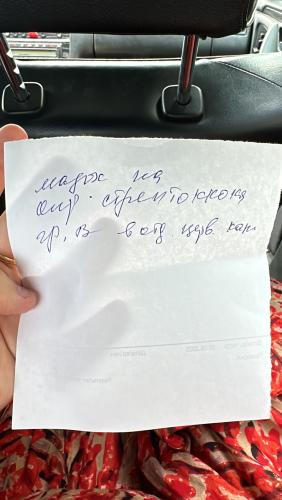 мазок на
опр. стрептококка
гр. В в отд церв. кан